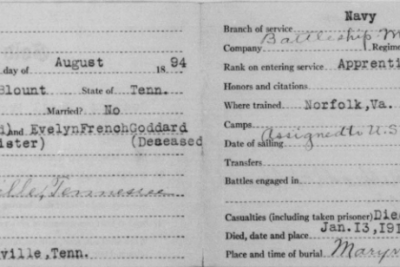 day of August 18 94
Blount State of Tenn.
Married? No
and EvelynFrenchGoddard
ister) (Deceased
ville, Tennessee
ville, Tenn.
Navy
Branch of service Battleship M
Company Regime
Rank on entering service Apprenti
Honors and citations
Where trained Norfolk, Va.
Camps
Date of sailing Assigned to U.S
Transfers
Battles engaged in
Casualties (including taken prisoner) Died
Died, date and place Jan.13,191
Place and time of burial Maryv